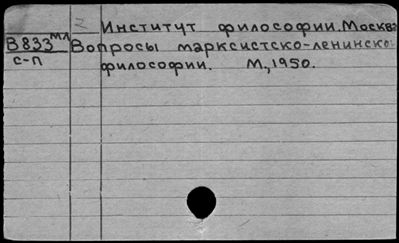 Институт философии. Москва
В833мл Вопросы марксистско-ленинской
с-п философии. М., 1950.